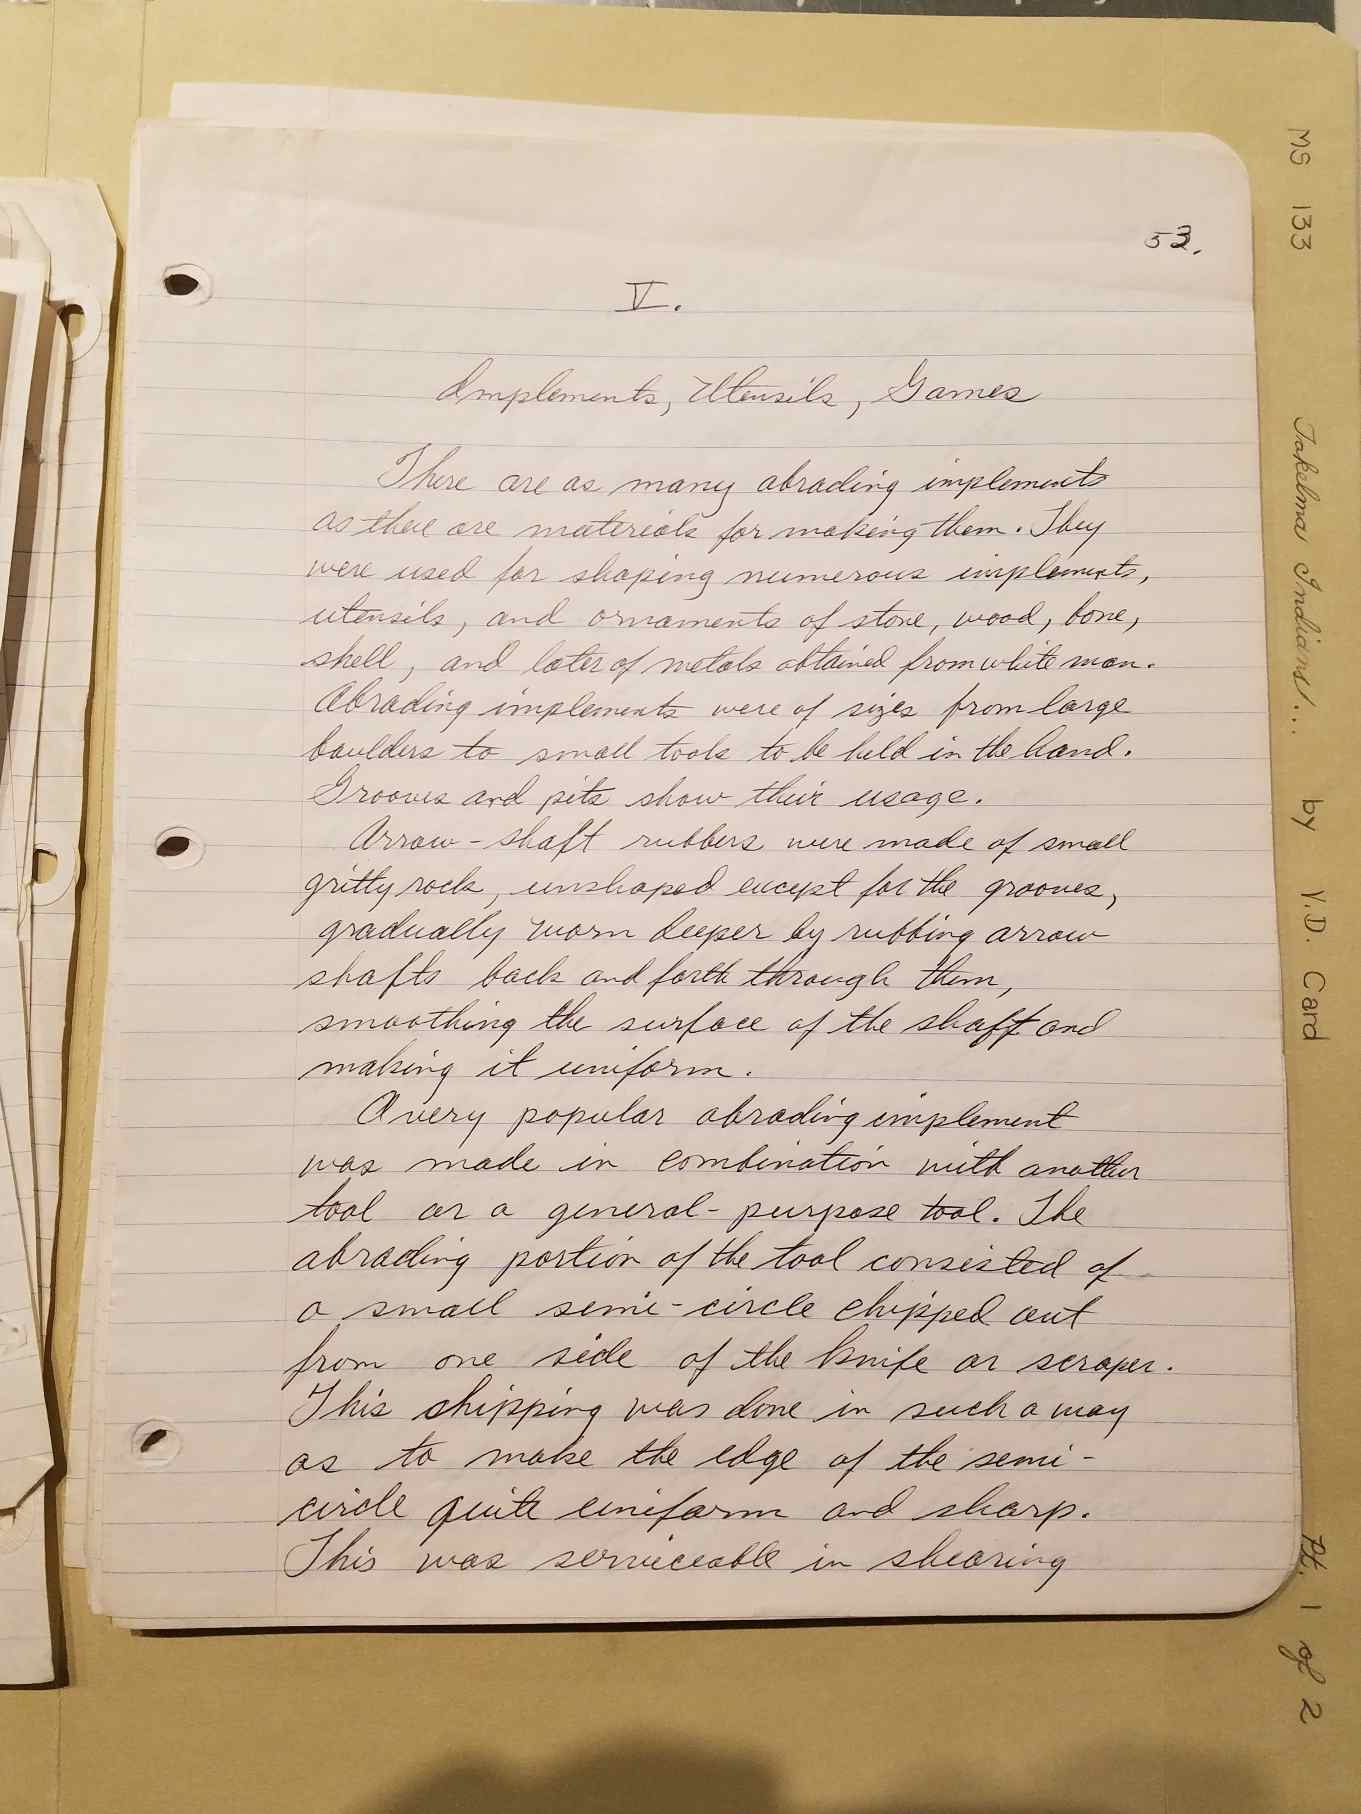 53.
V.
Implements, Utensils, Games
There are as many abrading implements
as there are materials for making them. They
were used for shaping numerous implements,
utensils, and ornaments of stone, wood, bone,
shell, and later of metals obtained from white man.
Abrading implements were of sizes from large
boulders to small tools to be held in the hand.
Grooves and pits show their usage.
Arrow-shaft rubbers were made of small
gritty rock, unshaped except for the grooves,
gradually worn deeper by rubbing arrow
shafts back and forth through them,
smoothing the surface of the shaft and
making it uniform.
A very popular abrading implement
was made in combination with another
tool or a general-purpose tool. The
abrading portion of the tool consisted of
a small semi-circle chipped out
from one side of the knife or scraper.
This chipping was done in such a way
as to make the edge of the semi-
circle quite uniform and sharp.
This was serviceable in shearing
MS 133 Takelma Indians... by Y.D. Card Pt. 1 of 2